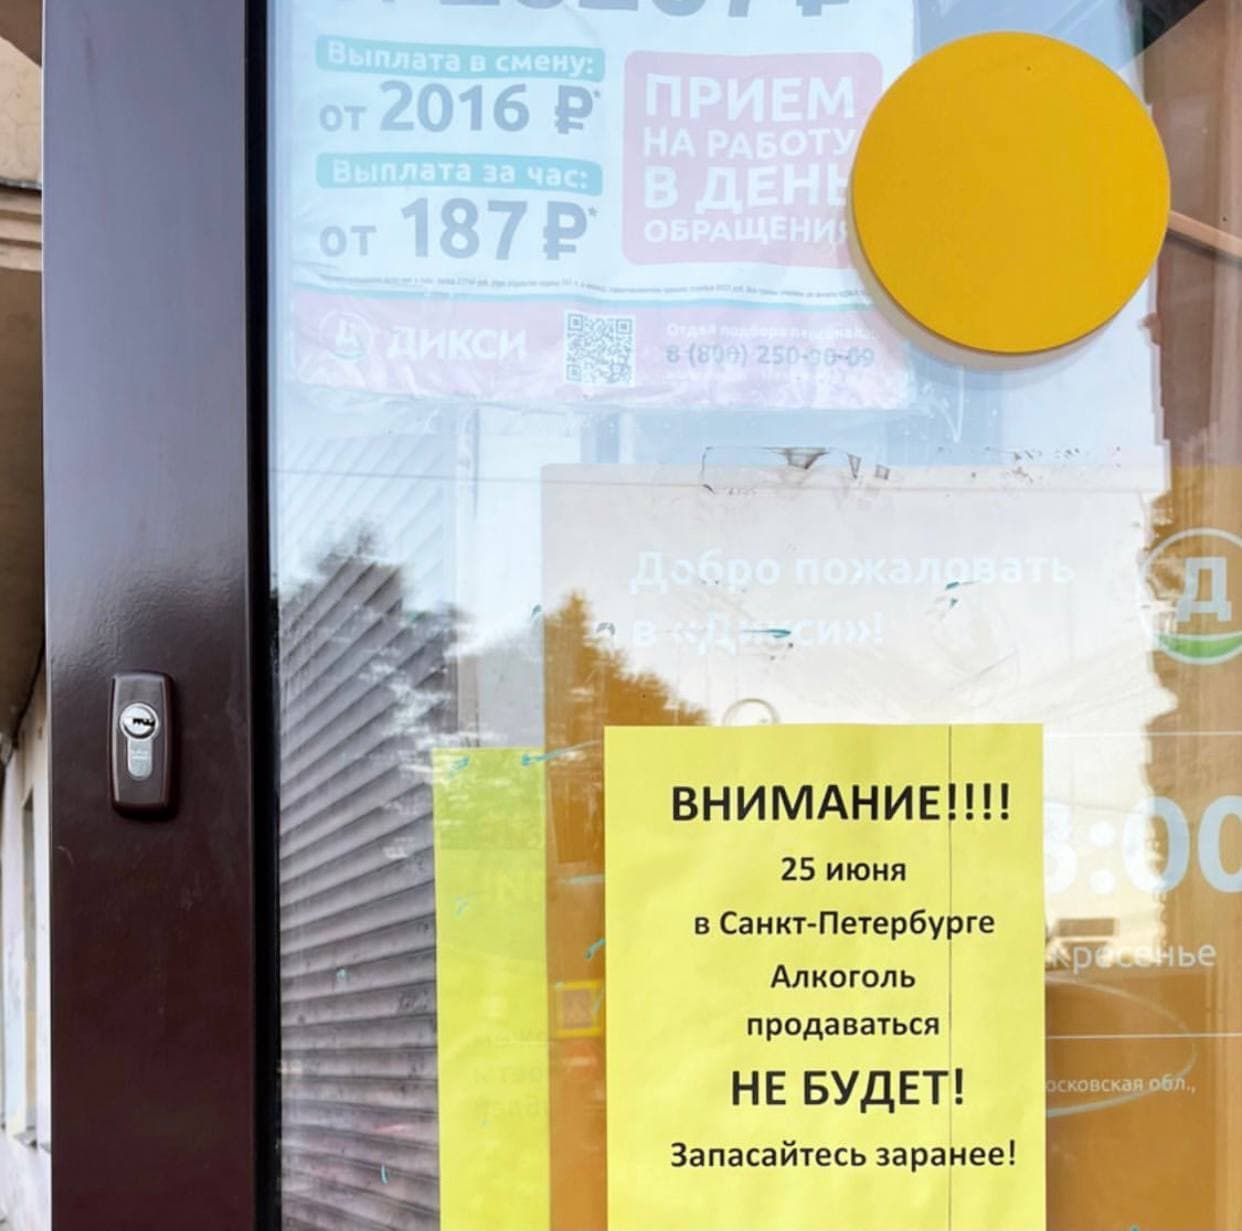 Выплата в смену:
от 2016 ₽*
Выплата за час:
от 187 ₽*
ПРИЕМ
НА РАБОТУ
В ДЕНЬ
ОБРАЩЕНИЯ
ДИКСИ
Отдел подбора персонала:
8 (800) 250-00-09
Добро пожаловать
в «Дикси»!
Д
ВНИМАНИЕ!!!!
25 июня
в Санкт-Петербурге
Алкоголь
продаваться
НЕ БУДЕТ!
Запасайтесь заранее!
:00
кресенье
осковская обл.,